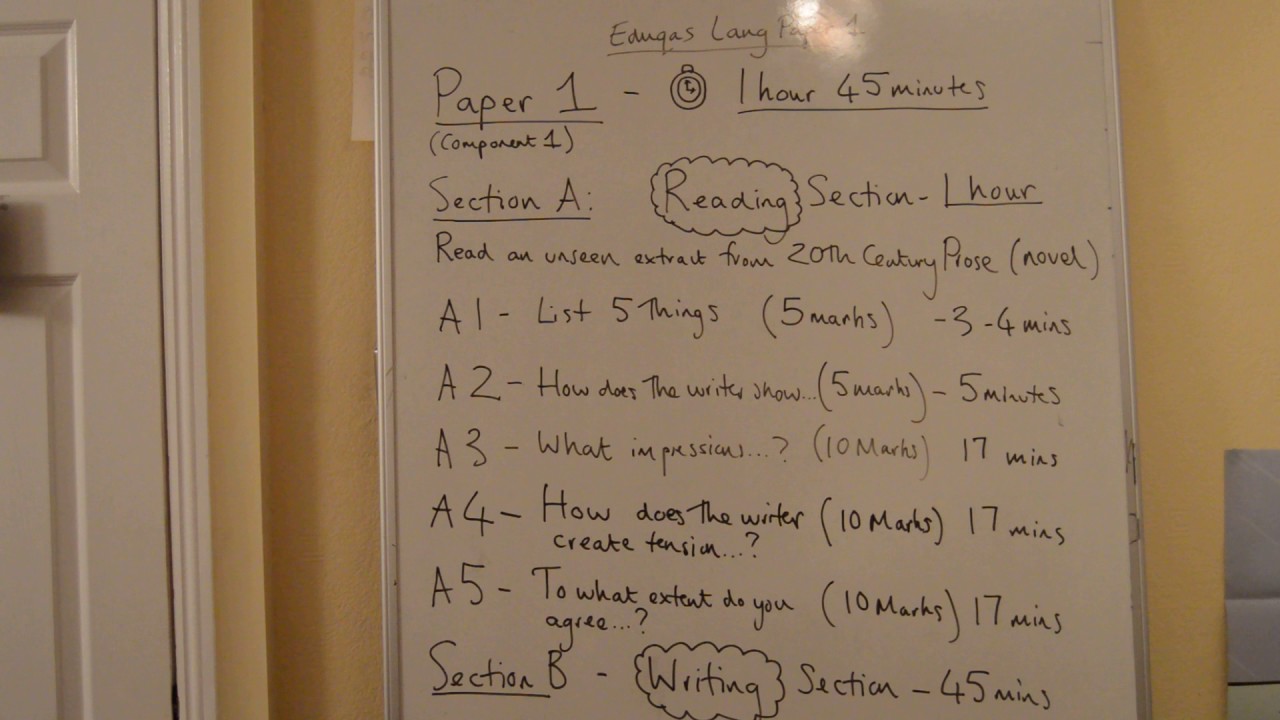 Eduqas Lang Paper 1.
Paper 1 - 1 hour 45 minutes
(Component 1)
Section A: Reading Section - 1 hour
Read an unseen extract from 20th Century Prose (novel)
A1 - List 5 Things (5 marks) - 3-4 mins
A2 - How does the writer show... (5 marks) - 5 minutes
A3 - What impressions...? (10 Marks) 17 mins
A4 - How does the writer (10 Marks) 17 mins
create tension...?
A5 - To what extent do you (10 Marks) 17 mins
agree...?
Section B - Writing Section - 45 mins